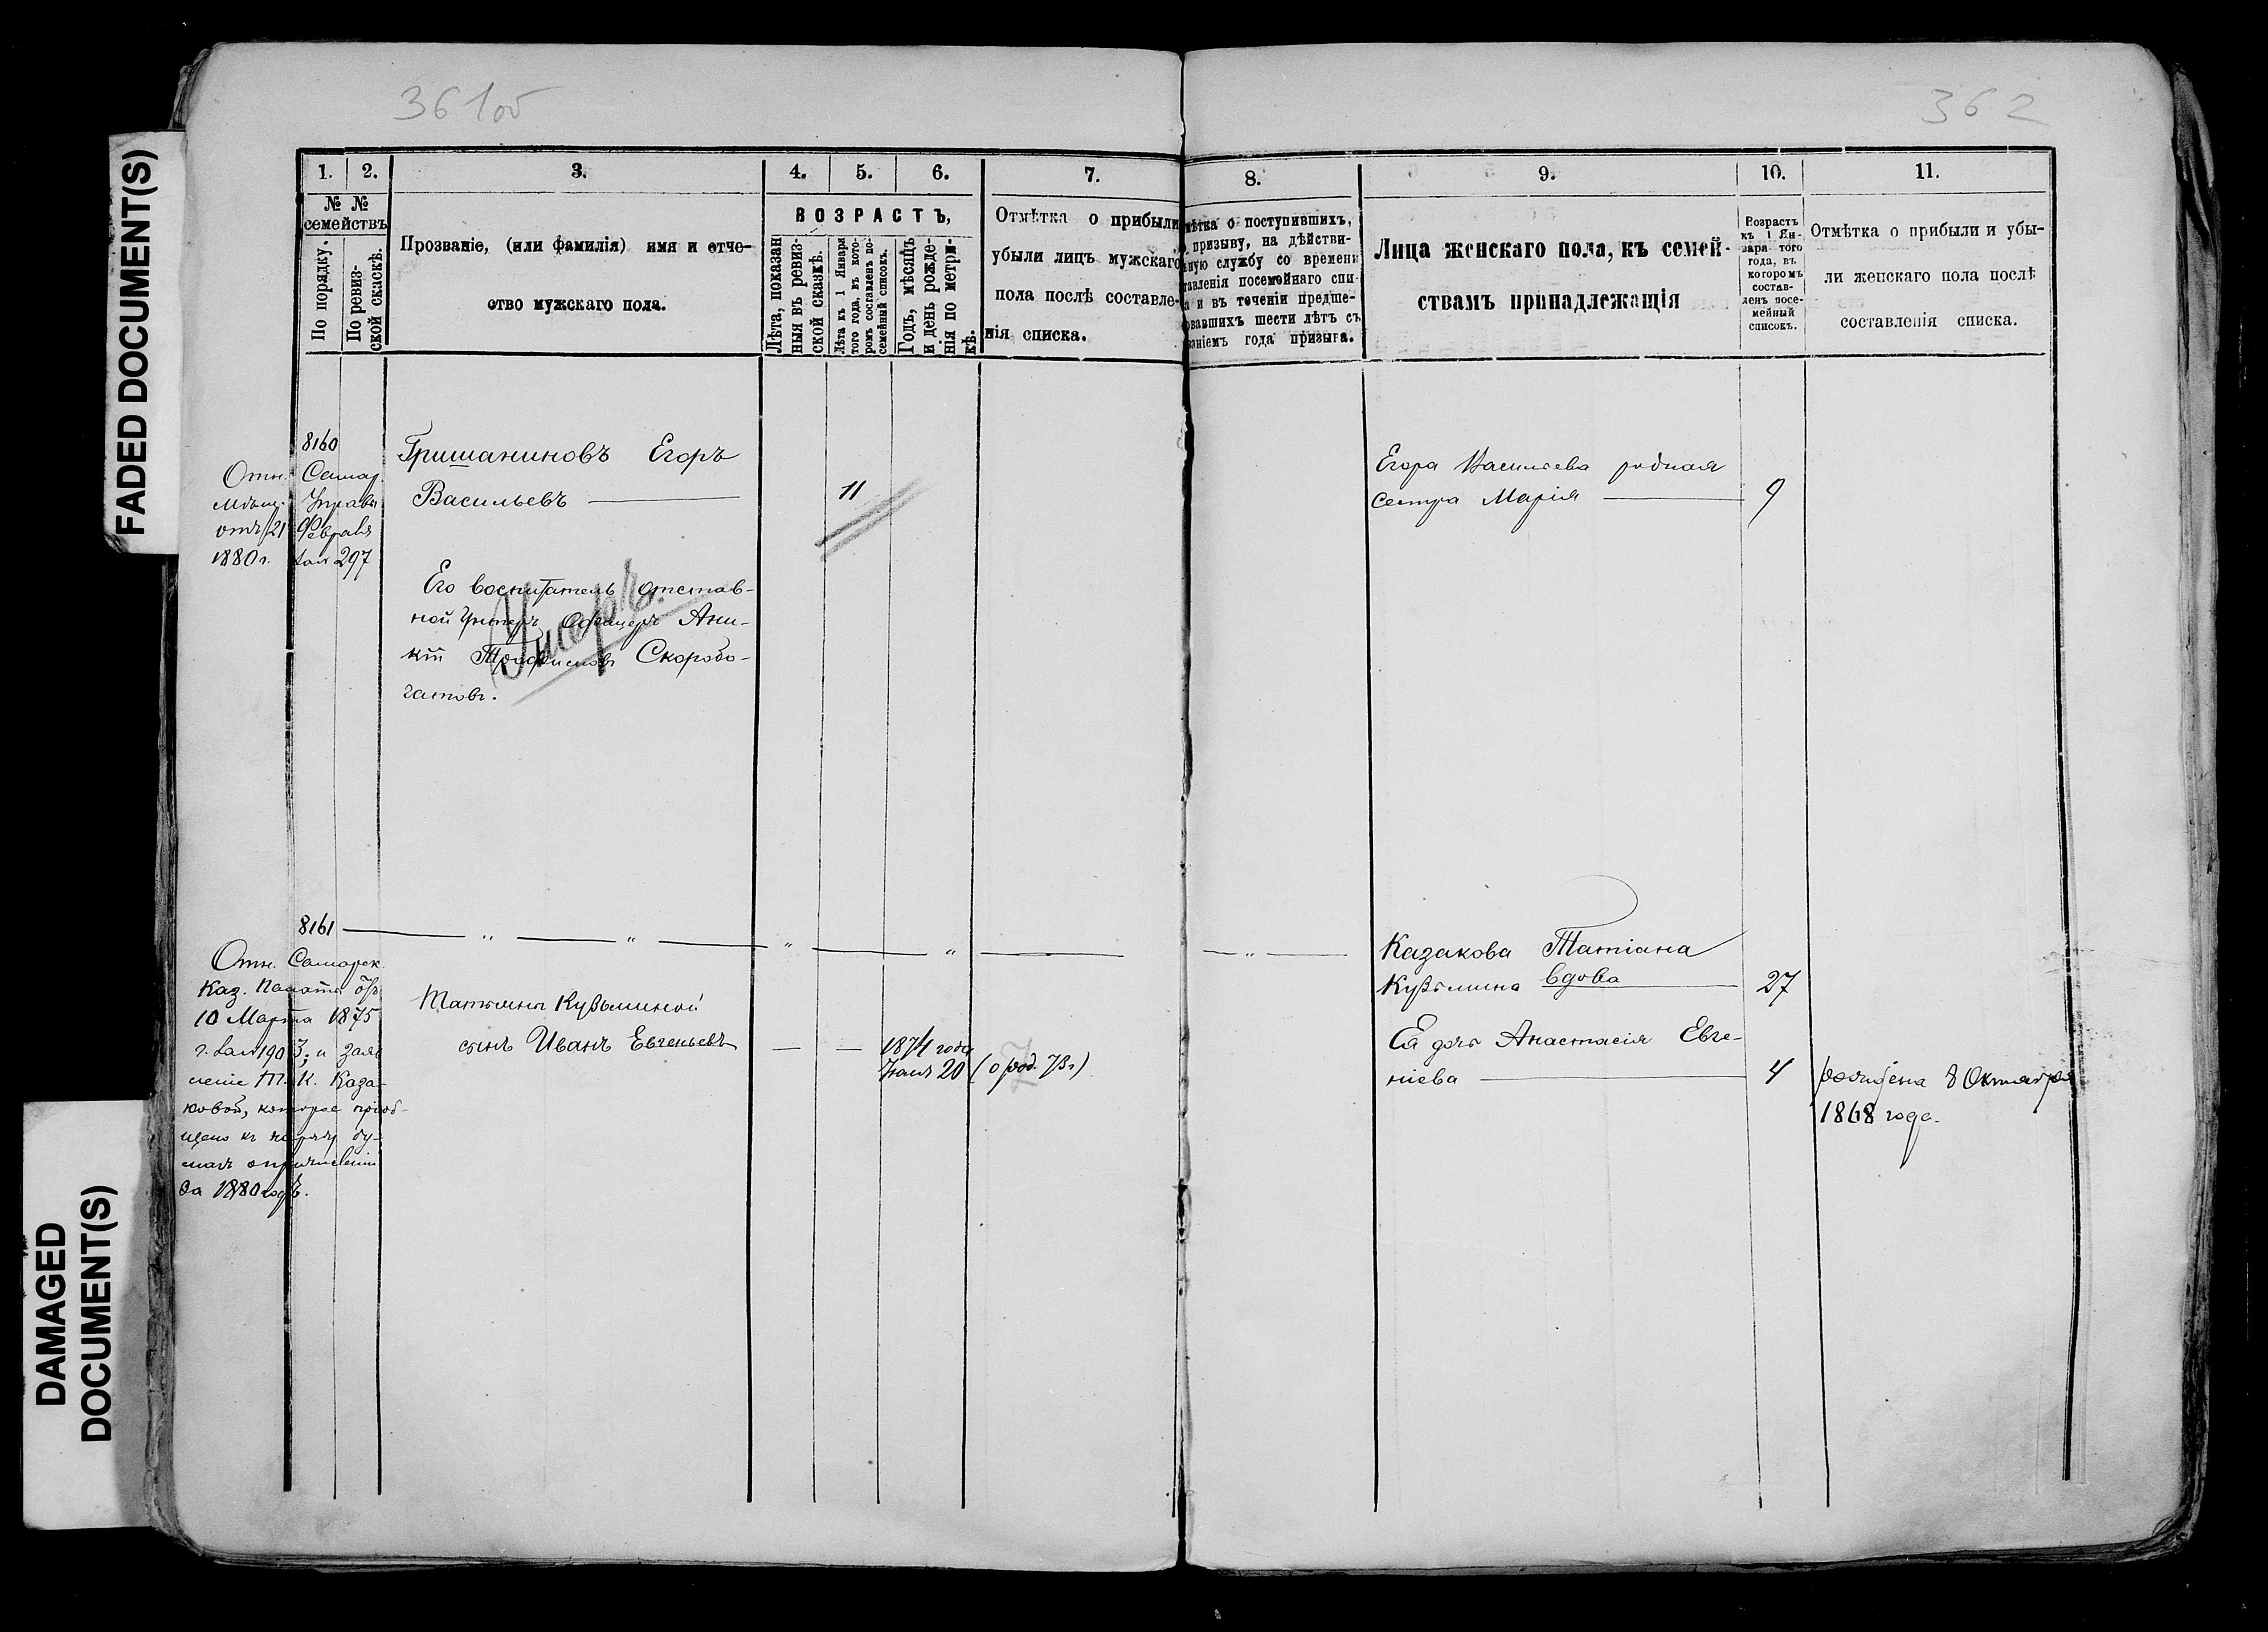 361об
362
FADED DOCUMENT(S)
DAMAGED
DOCUMENT(S)
1.
2.
3.
4.
5.
6.
7.
8.
9.
10.
11.
№ №
семействъ
По порядку.
По ревиз-
ской сказкѣ.
Прозваніе, (или фамилія) имя и отче-
ство мужскаго пола.
ВОЗРАСТЪ,
Лѣта, показан
ныя въ ревиз-
ской сказкѣ.
Лѣта къ 1 Января
того года, въ кото-
ромъ составленъ по-
семейный списокъ.
Годъ, мѣсяцъ
и день рожде-
нія по метри-
кѣ.
Отмѣтка о прибыли
убыли лицъ мужскаго
пола послѣ составле-
нія списка.
мѣтка о поступившихъ,
призыву, на дѣйстви-
ную службу со времени
тавленія посемейнаго спи-
а и въ теченіи предше-
овавшихъ шести лѣтъ съ
заніемъ года призыва.
Лица женскаго пола, къ семей-
ствамъ принадлежащія
Возрастъ
къ 1 Ян-
варя того
года, въ
которомъ
состав-
ленъ посе-
мейный
списокъ.
Отмѣтка о прибыли и убы-
ли женскаго пола послѣ
составленія списка.
8160
Отн. Самар.
мѣщ. Управы
отъ 21 Февраля
1880 г. за № 297
Гришаниновъ Егоръ
Васильевъ
11
Его воспитатель отстав-
ной Унтеръ Офицеръ Ани-
кій Трофимовъ Скоробо-
гатовъ.
Егора Васильева родная
сестра Марія 9
8161
Отн. Самарск.
Каз. Палаты отъ
10 Марта 1875
г. за № 1903; и заяв
леніе Т. К. Каза-
ковой, которое пріоб-
щено къ наряду бу-
магъ о причисленіи
за 1880 годъ.
Татьяны Кузьминой
сынъ Иванъ Евгеньевъ
1871 года
Мая 20 (о род. 73 г)
Казакова Татіана
Кузьмина вдова 27
Ея дочь Анастасія Евге-
ніева 4
рождена 8 Октября
1868 года.